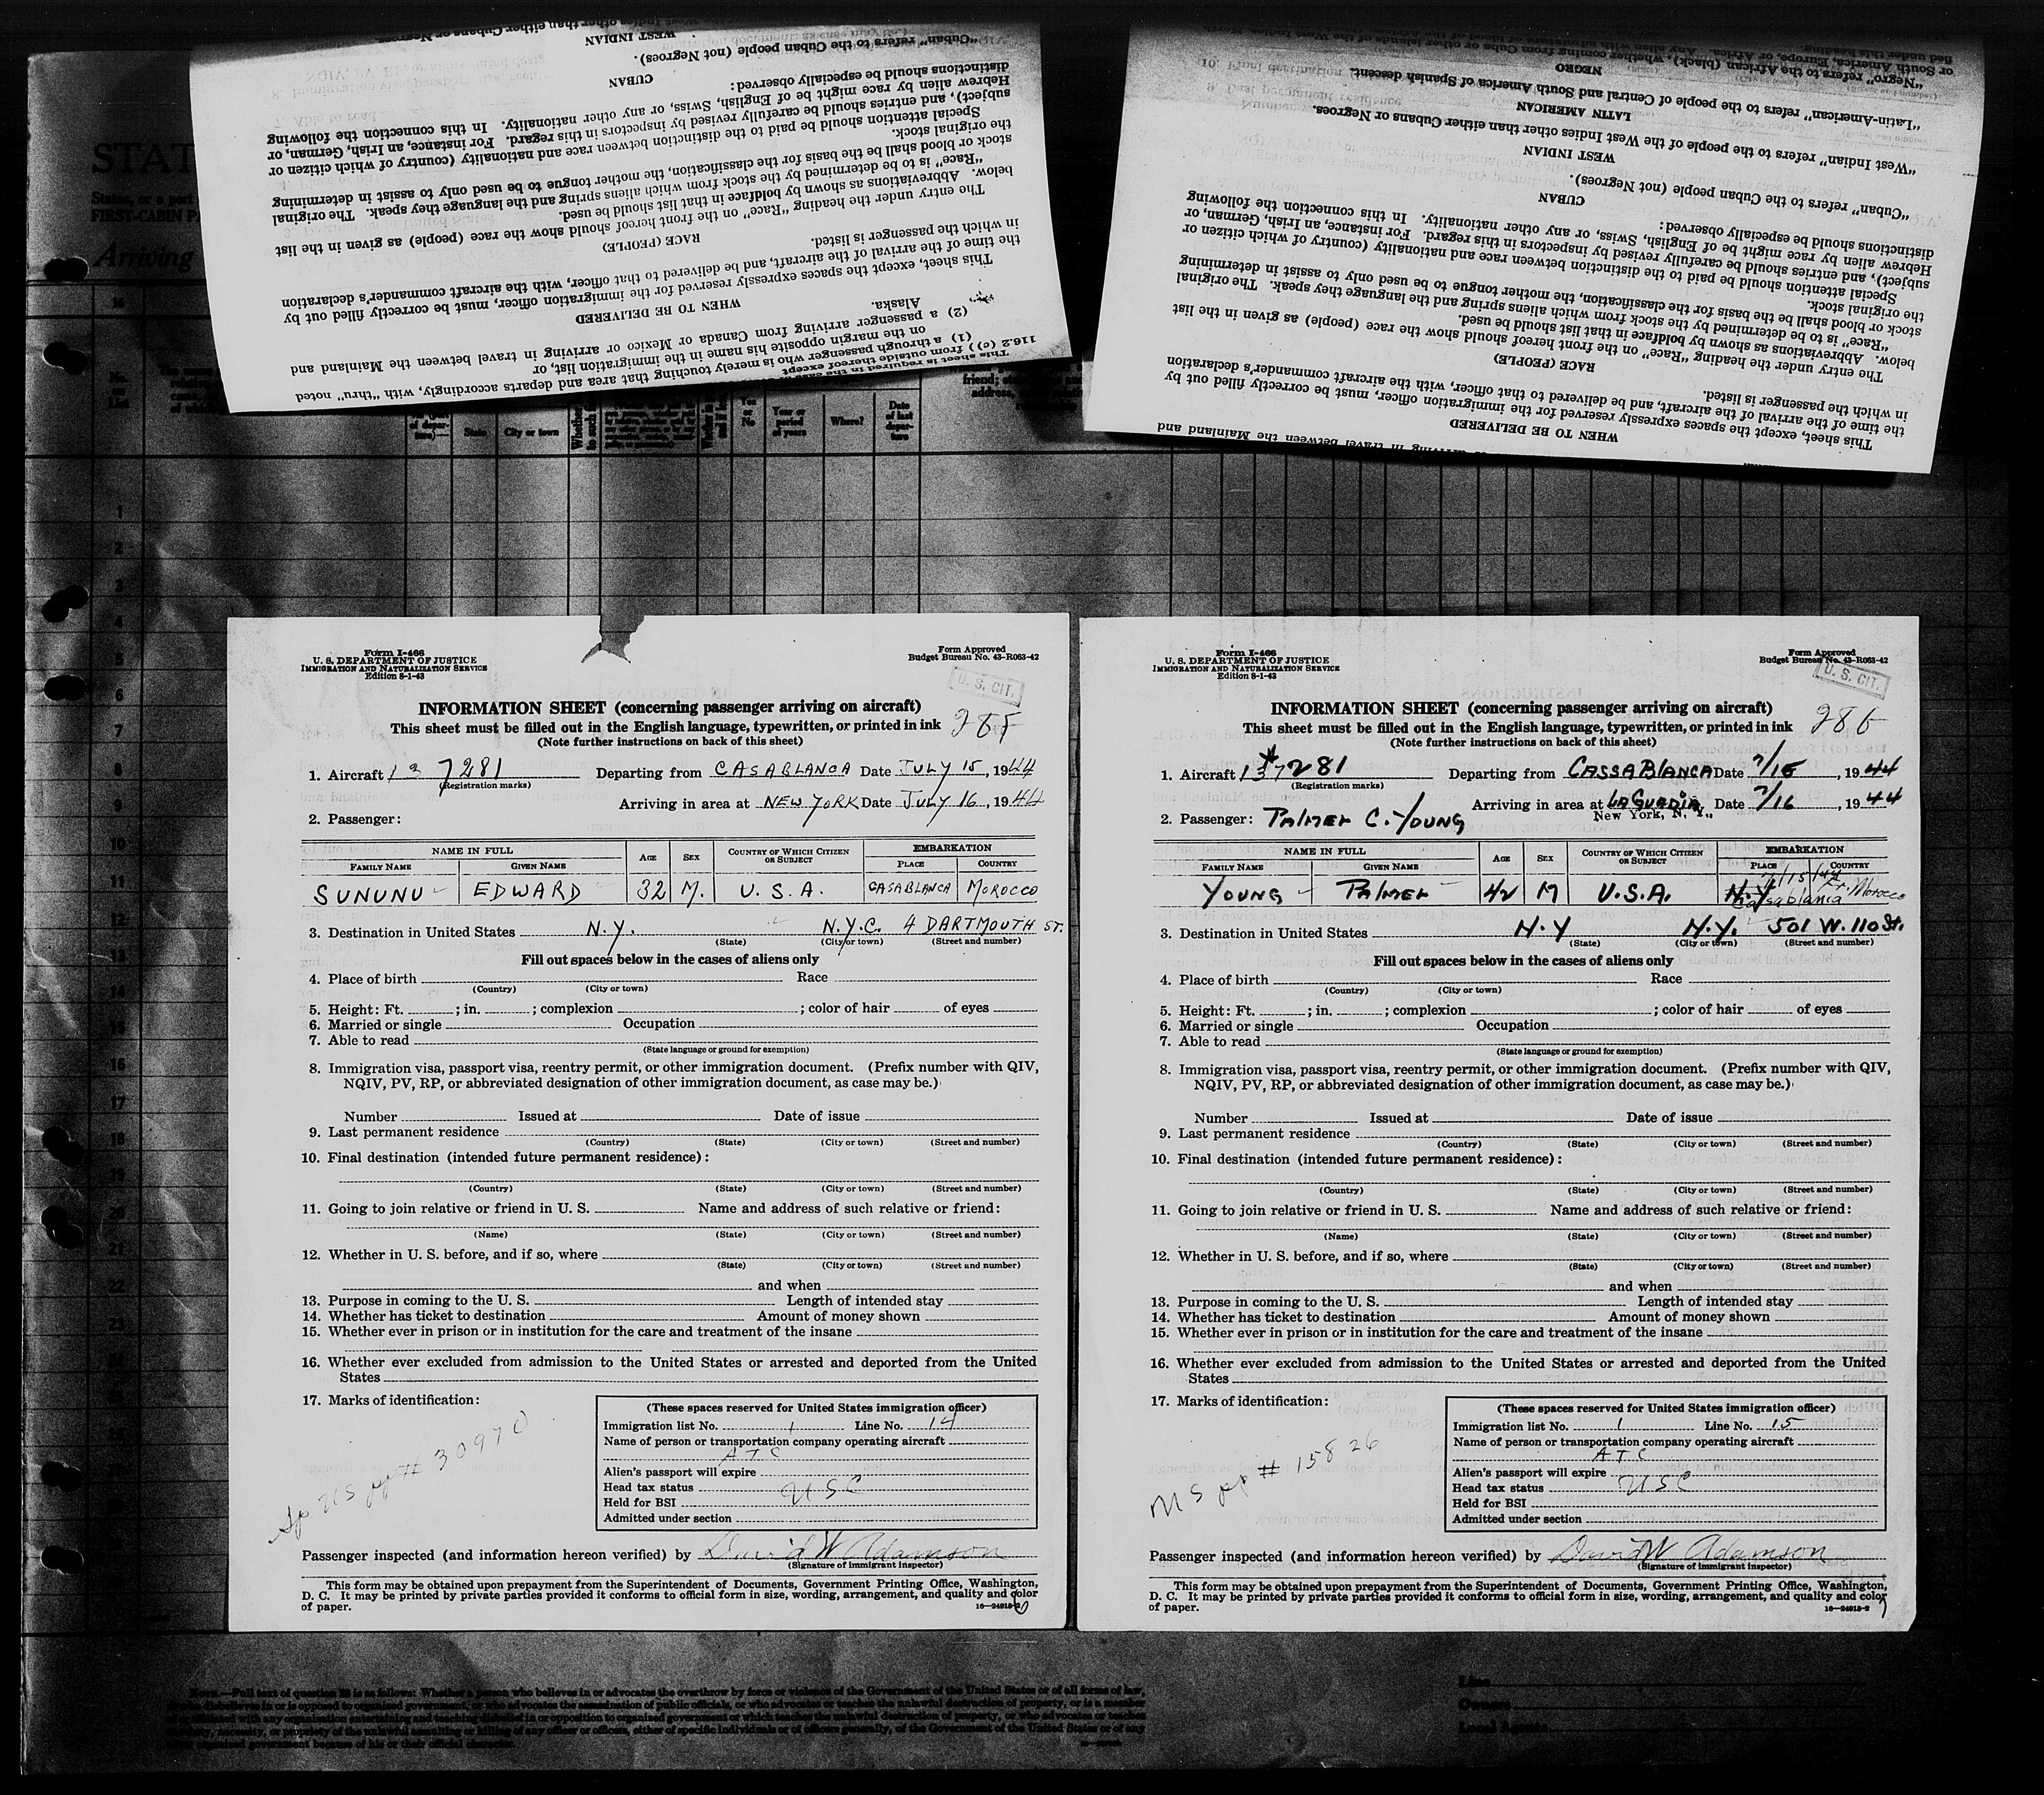 STAT
States, or a port
FIRST-CABIN P
Arriving
"Cuban" refers to the Cuban people (not Negroes).
WEST INDIAN
CUBAN
distinctions should be especially observed:
Hebrew alien by race might be of English, Swiss, or any other nationality. In this connection the following
subject), and entries should be carefully revised by inspectors in this regard. For instance, an Irish, German, or
Special attention should be paid to the distinction between race and nationality (country of which citizen or
the original stock.
stock or blood shall be the basis for the classification, the mother tongue to be used only to assist in determining
"Race" is to be determined by the stock from which aliens spring and the language they speak. The original
below. Abbreviations as shown by boldface in that list should be used.
The entry under the heading "Race" on the front hereof should show the race (people) as given in the list
RACE (PEOPLE)
in which the passenger is listed.
the time of the arrival of the aircraft, and be delivered to that officer, with the aircraft commander's declaration
This sheet, except the spaces expressly reserved for the immigration officer, must be correctly filled out by
WHEN TO BE DELIVERED
Alaska.
(2) a passenger arriving from Canada or Mexico or arriving in travel between the Mainland and
on the margin opposite his name in the immigration list, or
(1) a through passenger who is merely touching that area and departs accordingly, with "thru" noted
116.2 (c) ) from outside thereof except
This sheet is required in the case of
or South America, Europe, or Africa.
"Negro" refers to the African (black), whether coming from Cuba or other islands of the West Indies
NEGRO
"Latin-American" refers to the people of Central and South America of Spanish descent.
LATIN AMERICAN
"West Indian" refers to the people of the West Indies other than either Cubans or Negroes.
WEST INDIAN
"Cuban" refers to the Cuban people (not Negroes).
CUBAN
distinctions should be especially observed:
Hebrew alien by race might be of English, Swiss, or any other nationality. In this connection the following
subject), and entries should be carefully revised by inspectors in this regard. For instance, an Irish, German, or
Special attention should be paid to the distinction between race and nationality (country of which citizen or
the original stock.
stock or blood shall be the basis for the classification, the mother tongue to be used only to assist in determining
"Race" is to be determined by the stock from which aliens spring and the language they speak. The original
below. Abbreviations as shown by boldface in that list should be used.
The entry under the heading "Race" on the front hereof should show the race (people) as given in the list
RACE (PEOPLE)
in which the passenger is listed.
the time of the arrival of the aircraft, and be delivered to that officer, with the aircraft commander's declaration
This sheet, except the spaces expressly reserved for the immigration officer, must be correctly filled out by
WHEN TO BE DELIVERED
arriving in travel between the Mainland and
State City or town
Yes or No
Year or period of years
Where?
Date of last departure
1
2
3
4
5
6
7
8
9
10
11
12
13
14
15
16
17
18
19
20
21
22
23
Form I-466
U. S. DEPARTMENT OF JUSTICE
IMMIGRATION AND NATURALIZATION SERVICE
Edition 8-1-43
Form Approved
Budget Bureau No. 43-R063-42
U. S. CIT.
INFORMATION SHEET (concerning passenger arriving on aircraft)
This sheet must be filled out in the English language, typewritten, or printed in ink
(Note further instructions on back of this sheet)
1. Aircraft 7281 Departing from CASABLANCA Date JULY 15, 1944
(Registration marks)
Arriving in area at NEW YORK Date JULY 16, 1944
2. Passenger:
NAME IN FULL AGE SEX COUNTRY OF WHICH CITIZEN OR SUBJECT EMBARKATION
FAMILY NAME GIVEN NAME PLACE COUNTRY
SUNUNU EDWARD 32 M. U. S. A. CASABLANCA MOROCCO
3. Destination in United States N.Y. N.Y.C. 4 DARTMOUTH ST.
(State) (City or town) (Street and number)
Fill out spaces below in the cases of aliens only
4. Place of birth Race
(Country) (City or town)
5. Height: Ft. ; in. ; complexion ; color of hair of eyes
6. Married or single Occupation
7. Able to read
(State language or ground for exemption)
8. Immigration visa, passport visa, reentry permit, or other immigration document. (Prefix number with QIV,
NQIV, PV, RP, or abbreviated designation of other immigration document, as case may be.)
Number Issued at Date of issue
9. Last permanent residence
(Country) (State) (City or town) (Street and number)
10. Final destination (intended future permanent residence):
(Country) (State) (City or town) (Street and number)
11. Going to join relative or friend in U. S. Name and address of such relative or friend:
(Name) (State) (City or town) (Street and number)
12. Whether in U. S. before, and if so, where
(State) (City or town) (Street and number)
and when
13. Purpose in coming to the U. S. Length of intended stay
14. Whether has ticket to destination Amount of money shown
15. Whether ever in prison or in institution for the care and treatment of the insane
16. Whether ever excluded from admission to the United States or arrested and deported from the United
States
17. Marks of identification:
US pp # 30970
(These spaces reserved for United States immigration officer)
Immigration list No. 1 Line No. 14
Name of person or transportation company operating aircraft
ATC
Alien's passport will expire
Head tax status USC
Held for BSI
Admitted under section
Passenger inspected (and information hereon verified) by David W Adamson
(Signature of immigrant inspector)
This form may be obtained upon prepayment from the Superintendent of Documents, Government Printing Office, Washington,
D. C. It may be printed by private parties provided it conforms to official form in size, wording, arrangement, and quality and color
of paper.
Form I-466
U. S. DEPARTMENT OF JUSTICE
IMMIGRATION AND NATURALIZATION SERVICE
Edition 8-1-43
Form Approved
Budget Bureau No. 43-R063-42
U. S. CIT.
INFORMATION SHEET (concerning passenger arriving on aircraft)
This sheet must be filled out in the English language, typewritten, or printed in ink
286
(Note further instructions on back of this sheet)
1. Aircraft 137281 Departing from CASSABLANCA Date 7/15, 1944
(Registration marks)
Arriving in area at LA GUADIA, Date 7/16, 1944
New York, N. Y.,
2. Passenger: PALMER C. YOUNG
NAME IN FULL AGE SEX COUNTRY OF WHICH CITIZEN OR SUBJECT EMBARKATION
FAMILY NAME GIVEN NAME PLACE COUNTRY
YOUNG PALMER 42 M U.S.A. N.Y. 7/15/44 Casablanca Fr. Morocco
3. Destination in United States N.Y N.Y. 501 W. 110 St.
(State) (City or town) (Street and number)
Fill out spaces below in the cases of aliens only
4. Place of birth Race
(Country) (City or town)
5. Height: Ft. ; in. ; complexion ; color of hair of eyes
6. Married or single Occupation
7. Able to read
(State language or ground for exemption)
8. Immigration visa, passport visa, reentry permit, or other immigration document. (Prefix number with QIV,
NQIV, PV, RP, or abbreviated designation of other immigration document, as case may be.)
Number Issued at Date of issue
9. Last permanent residence
(Country) (State) (City or town) (Street and number)
10. Final destination (intended future permanent residence):
(Country) (State) (City or town) (Street and number)
11. Going to join relative or friend in U. S. Name and address of such relative or friend:
(Name) (State) (City or town) (Street and number)
12. Whether in U. S. before, and if so, where
(State) (City or town) (Street and number)
and when
13. Purpose in coming to the U. S. Length of intended stay
14. Whether has ticket to destination Amount of money shown
15. Whether ever in prison or in institution for the care and treatment of the insane
16. Whether ever excluded from admission to the United States or arrested and deported from the United
States
17. Marks of identification:
US pp # 15826
(These spaces reserved for United States immigration officer)
Immigration list No. 1 Line No. 15
Name of person or transportation company operating aircraft
ATC
Alien's passport will expire
Head tax status USC
Held for BSI
Admitted under section
Passenger inspected (and information hereon verified) by David W Adamson
(Signature of immigrant inspector)
This form may be obtained upon prepayment from the Superintendent of Documents, Government Printing Office, Washington,
D. C. It may be printed by private parties provided it conforms to official form in size, wording, arrangement, and quality and color
of paper.
NOTE.—Full text of question 28 is as follows: Whether a person who believes in or advocates the overthrow by force or violence of the Government of the United States or of all forms of law,
Line
Owners
Local Agents